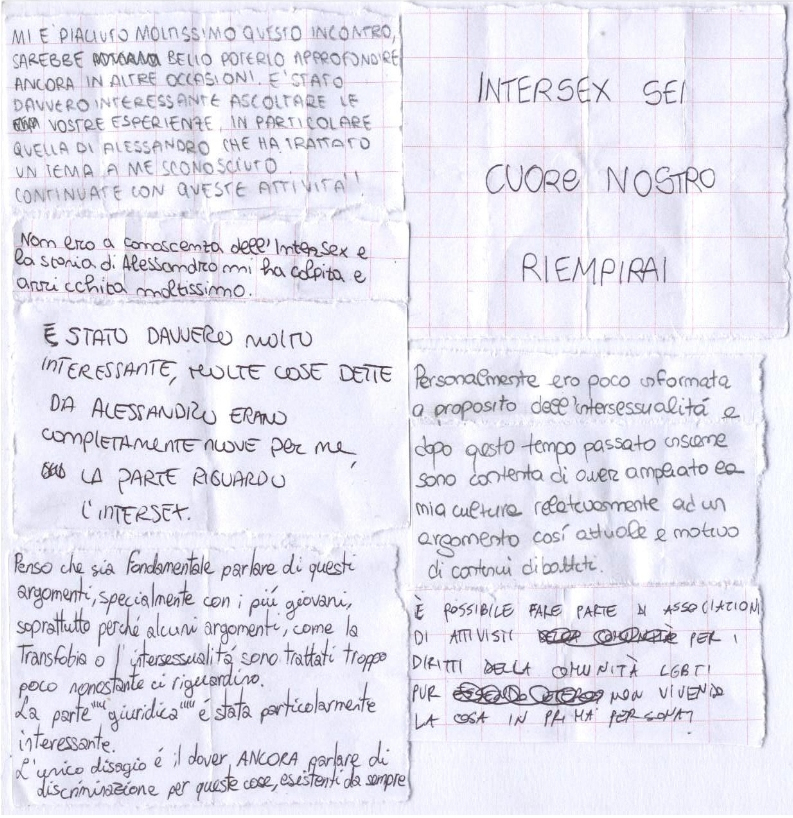 MI È PIACIUTO MOLTISSIMO QUESTO INCONTRO,
SAREBBE BELLO POTERLO APPROFONDIRE
ANCORA IN ALTRE OCCASIONI. E' STATO
DAVVERO INTERESSANTE ASCOLTARE LE
VOSTRE ESPERIENZE, IN PARTICOLARE
QUELLA DI ALESSANDRO CHE HA TRATTATO
UN TEMA A ME SCONOSCIUTO.
CONTINUATE CON QUESTE ATTIVITA'!
Non ero a conoscenza dell'Intersex e
la storia di Alessandro mi ha colpita e
arricchita moltissimo.
È STATO DAVVERO MOLTO
INTERESSANTE, MOLTE COSE DETTE
DA ALESSANDRO ERANO
COMPLETAMENTE NUOVE PER ME,
LA PARTE RIGUARDO
L'INTERSEX.
Penso che sia fondamentale parlare di questi
argomenti, specialmente con i piú giovani,
soprattutto perché alcuni argomenti, come la
Transfobia o l'intersessualitá sono trattati troppo
poco nonostante ci riguardino.
La parte ""giuridica"" é stata particolarmente
interessante.
L'unico disagio é il dover ANCORA parlare di
discriminazione per queste cose, esistenti da sempre
INTERSEX SEI
CUORE NOSTRO
RIEMPIRAI
Personalmente ero poco informata
a proposito dell'intersessualitá e
dopo questo tempo passato insieme
sono contenta di aver ampliato la
mia cultura relativamente ad un
argomento cosí attuale e motivo
di continui dibattiti.
È POSSIBILE FARE PARTE DI ASSOCIAZIONI
DI ATTIVISTI PER I
DIRITTI DELLA COMUNITÀ LGBTI
PUR NON VIVENDO
LA COSA IN PRIMA PERSONA?